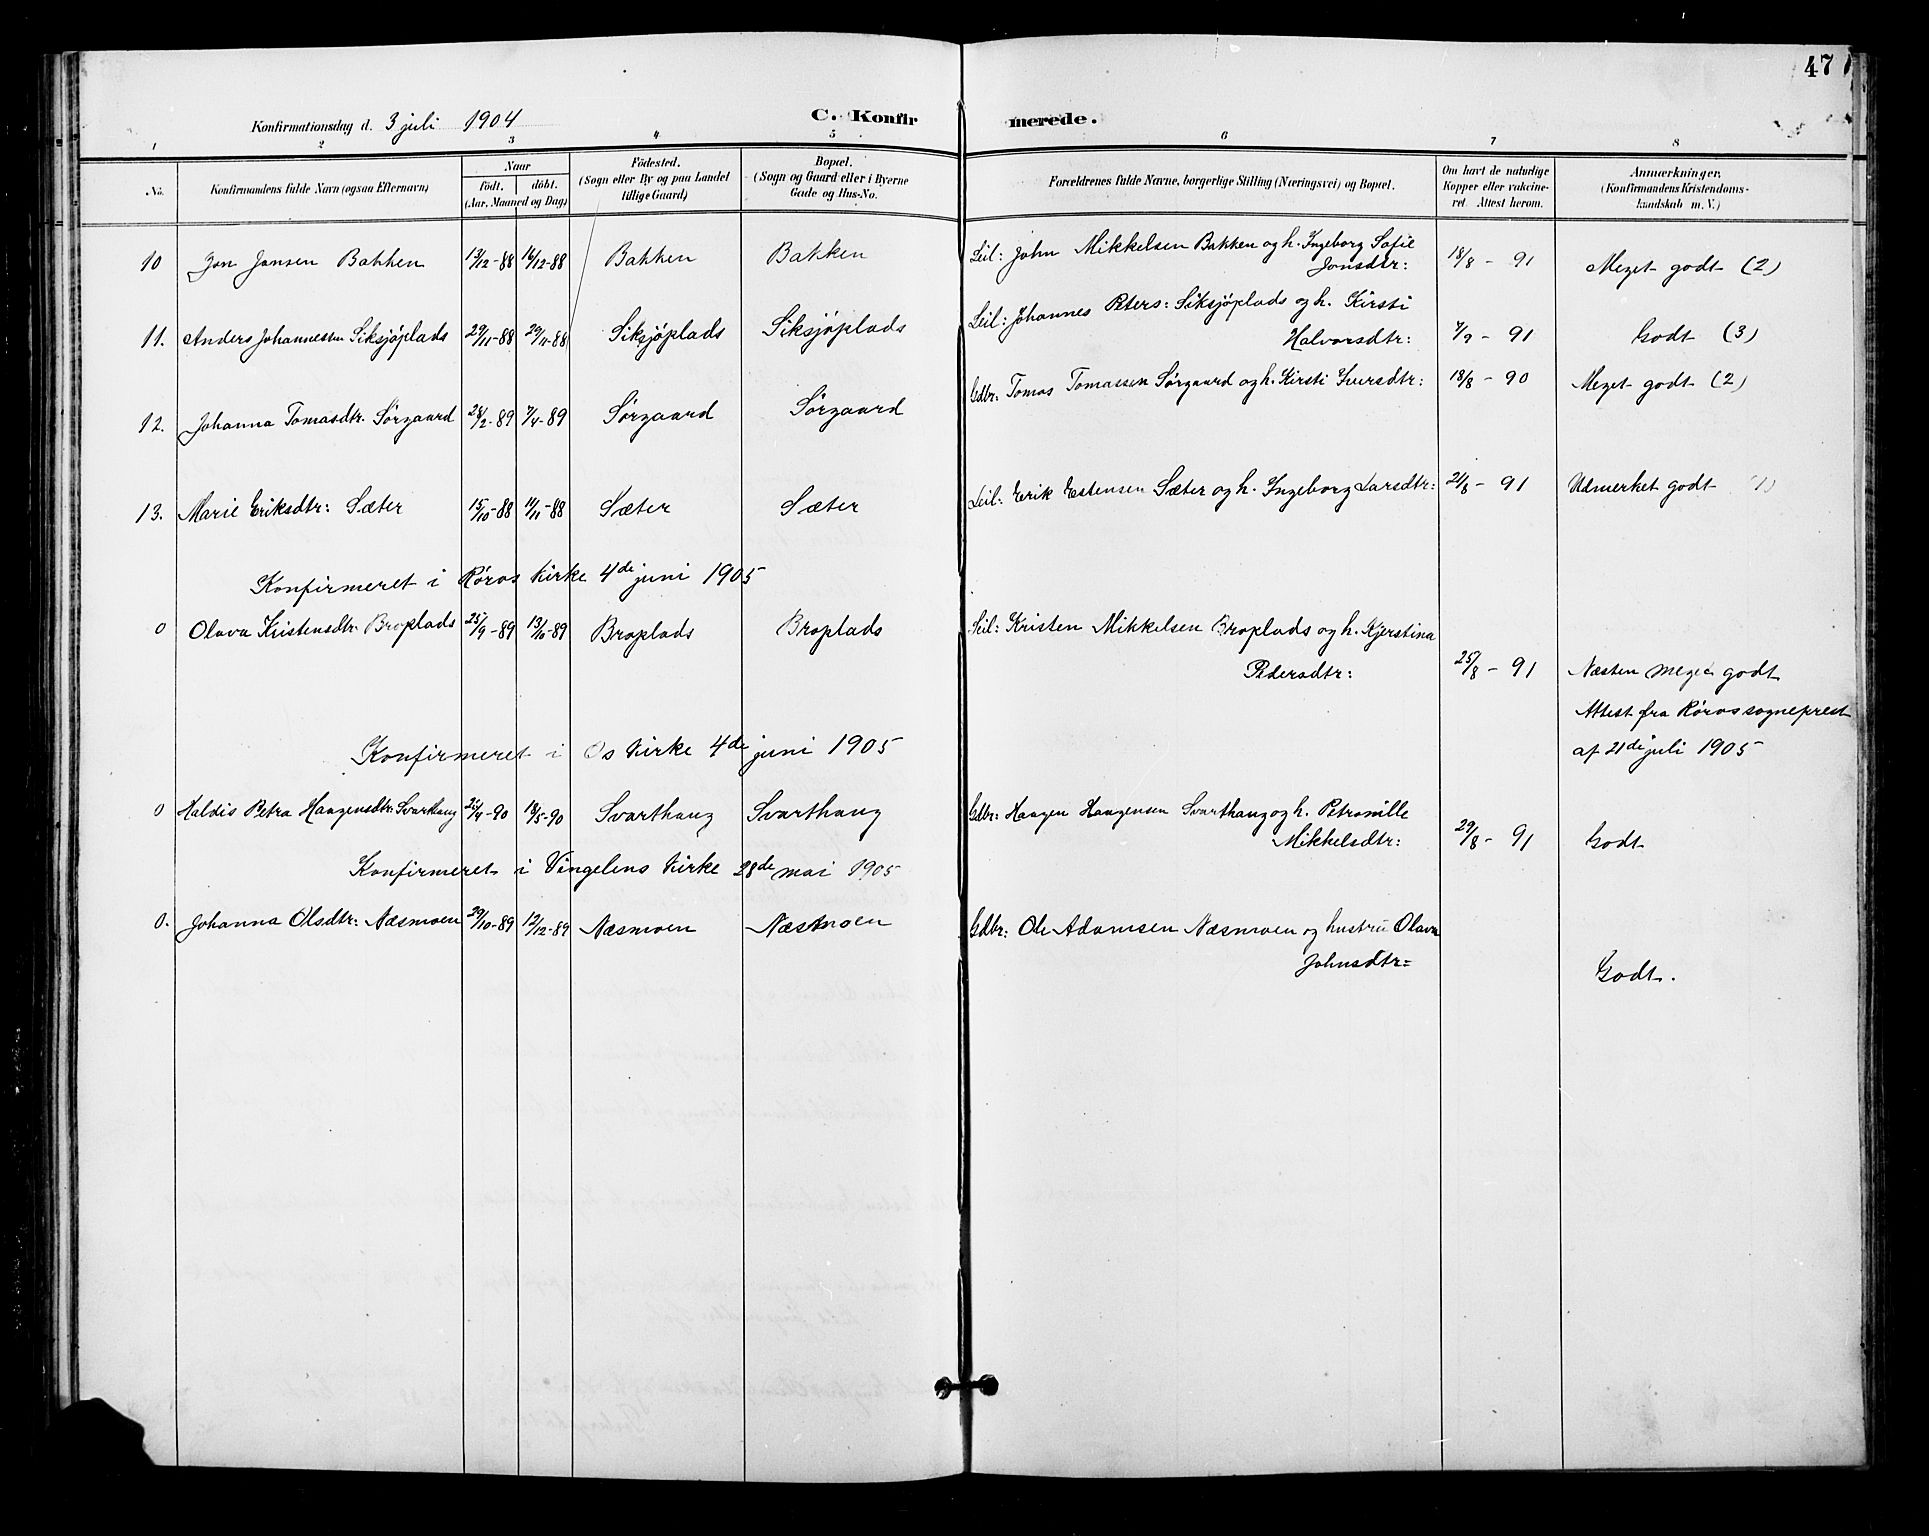 47
Konfirmationsdag d. 3 juli 1904 C. Konfirmerede.
1 2 3 4 5 6 7 8
No. Konfirmandens fulde Navn (ogsaa Efternavn) Naar födt. döbt. (Aar, Maaned og Dag) Födested. (Sogn eller By og paa Landet tillige Gaard) Bopæl. (Sogn og Gaard eller i Byerne Gade og Hus-No. Forældrenes fulde Navne, borgerlige Stilling (Næringsvei) og Bopæl. Om havt de naturlige Kopper eller vakcineret. Attest herom. Anmærkninger. (Konfirmandens Kristendomskundskab m. V.)
10 Jon Jonsen Bakken 13/12-88 16/12-88 Bakken Bakken Leil: John Mikkelsen Bakken og h. Ingeborg Sofie 18/8 - 91 Meget godt (2)
Jonsdtr:
11. Anders Johannesen Siksjöplads 29/11-88 29/11-88 Siksjöplads Siksjöplads Leil: Johannes Peters: Siksjöplads og h. Kirsti
Halvorsdtr: 7/9 - 91 Godt (3)
12. Johanna Tomasdtr. Sørgaard 28/2-89 7/4-89 Sørgaard Sørgaard Gdbr: Tomas Tomassen Sørgaard og h. Kirsti Iversdtr: 18/8 - 90 Meget godt (2)
13. Marie Eriksdtr: Sæter 15/10-88 11/11-88 Sæter Sæter Leil: Erik Estensen Sæter og h. Ingeborg Larsdtr: 21/8 - 91 Udmerket godt
Konfirmeret i Røros kirke 4de juni 1905
0 Olava Kristensdtr. Broplads 25/9-89 13/10-89 Broplads Broplads Leil: Kristen Mikkelsen Broplads og h. Kjerstina
Pedersdtr: 25/8 - 91 Næsten meget godt
Attest fra Røros sogneprest
af 21de juli 1905
Konfirmeret i Os kirke 4de juni 1905
0 Haldis Petra Haagensdtr. Svarthaug 18/5-90 Svarthaug Svarthaug Gdbr: Haagen Haagensen Svarthaug og h. Petronille
Mikkelsdtr: 29/8 - 91 Godt
Konfirmeret i Vingelens kirke 28de mai 1905
0. Johanna Olsdtr: Næsmoen 29/10-89 12/12-89 Næsmoen Næsmoen Gdbr: Ole Adamsen Næsmoen og hustru Olava
Johnsdtr= Godt.